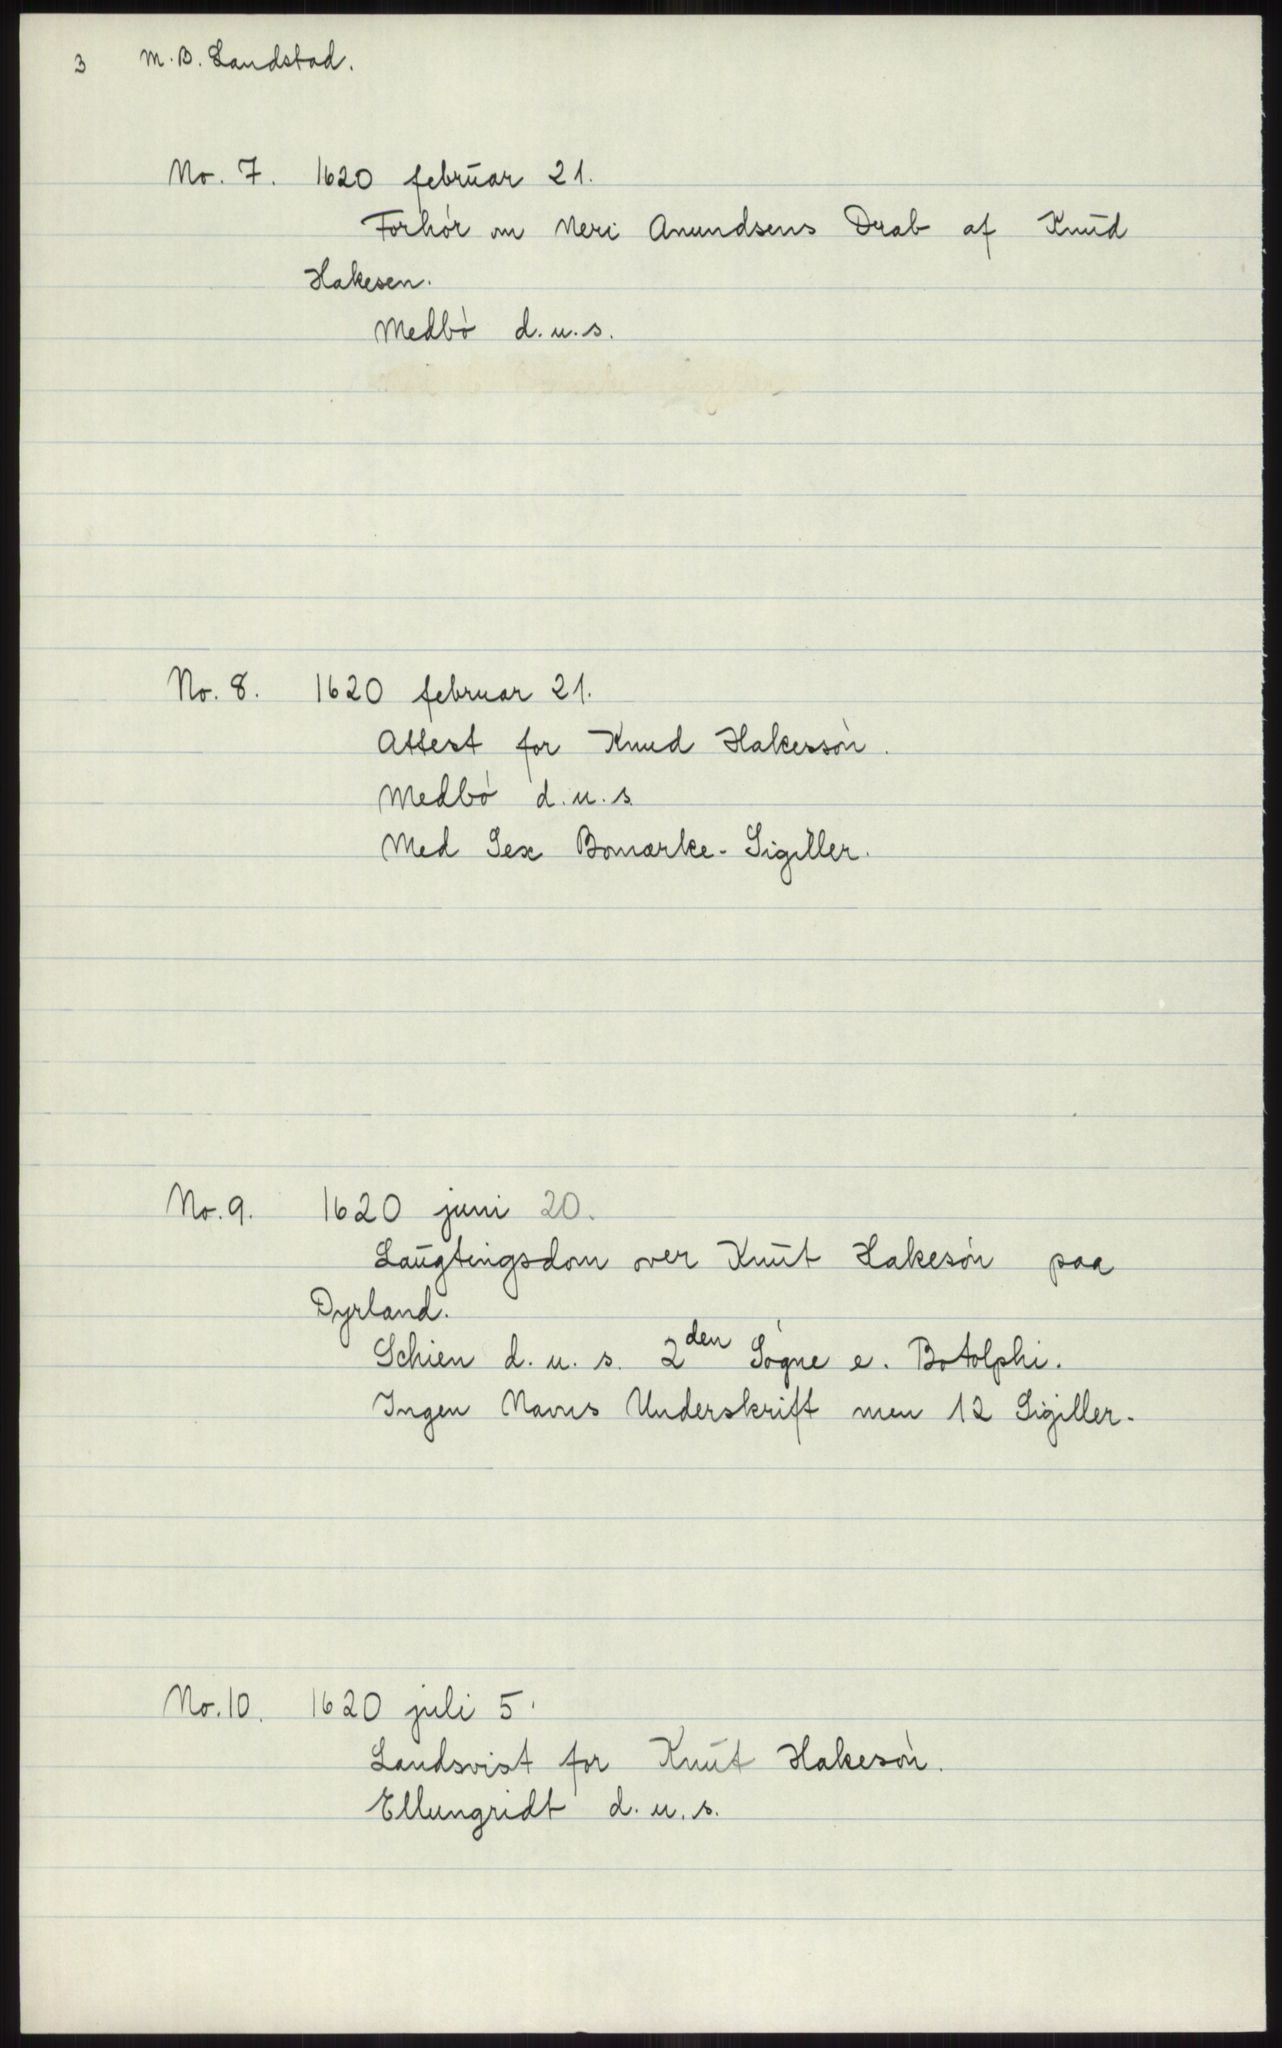 3 M.B. Landstad.
No. 7. 1620 februar 21.
Forhór om Neri Anundsens Drab af Knud
Hakesen.
Medbó d.u.s.
No. 8. 1620 februar 21.
Attest for Knud Hakessón.
Medbó d.u.s
Med Sex Bomærke-Sigiller.
No. 9. 1620 juni 20.
Laugtingsdom over Knut Hakesón paa
Dyrland.
Schien d.u.s. 2den Sógne e. Botolphi.
Ingen Navns Underskrift men 12 Sigiller.
No. 10. 1620 juli 5.
Landsvist for Knut Hakesón.
Ellungridt d.u.s.